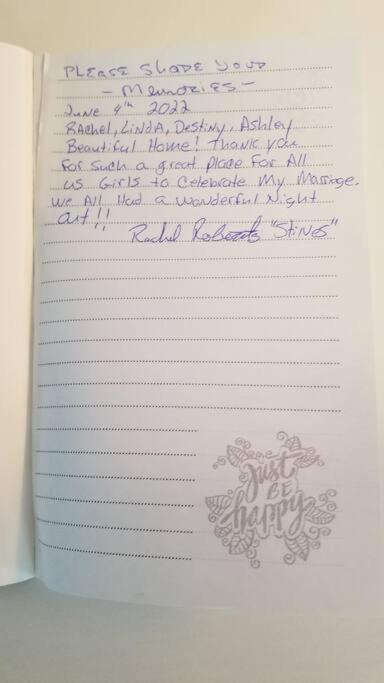 PLEASE SHARE YOUR
- MEMORIES -
June 4th 2022
RAchel, LiNdA, Destiny, Ashley
Beautiful Home! Thank you
For such a great place For All
us Girls to Celebrate My Marriage.
We All Had a Wonderful Night
out!!
Rachel Roberts "Stines"
just
BE
happy